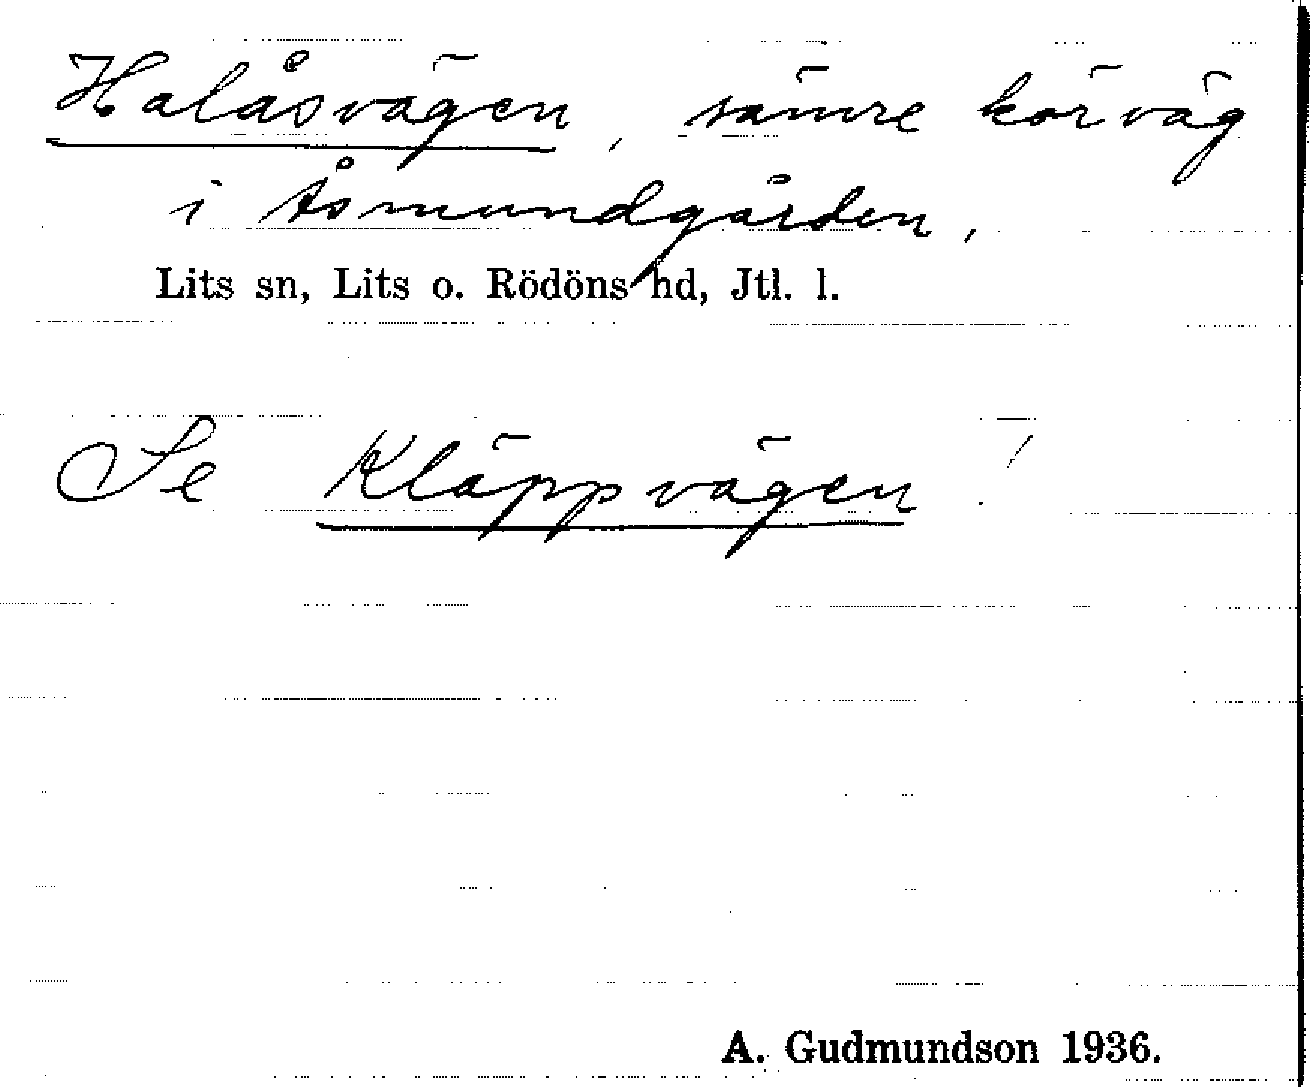 Halåsvägen, sämre körväg
i Åsmundgården,
Lits sn, Lits o. Rödöns hd, Jtl. l.
Se Kläppvägen!
A. Gudmundson 1936.